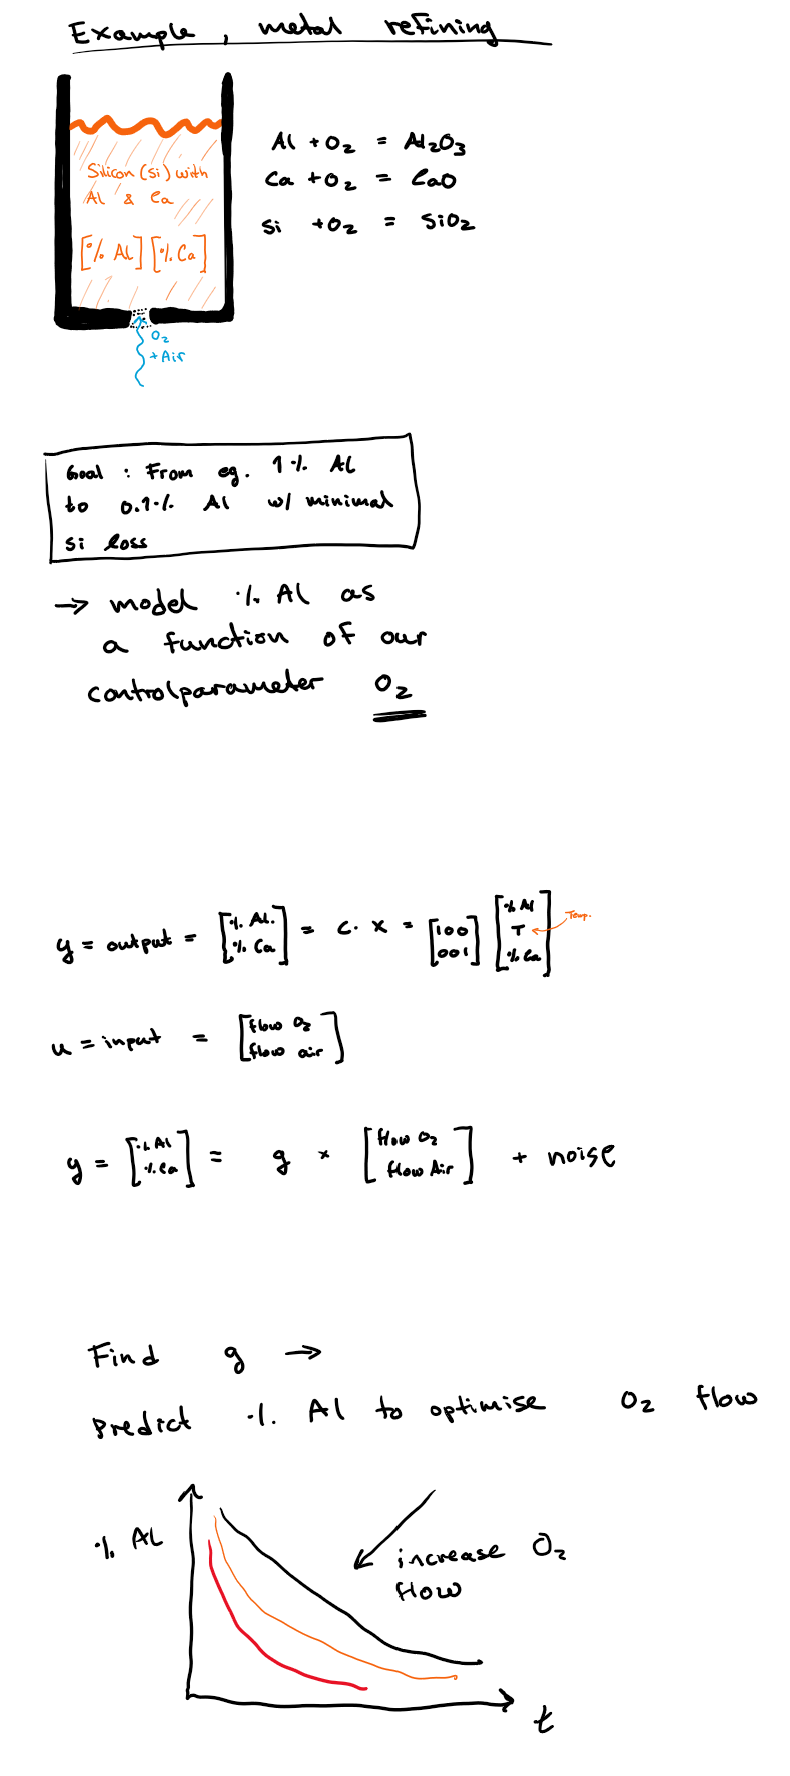 Example, metal refining
Silicon (Si) with
Al & Ca
[% Al] [% Ca]
Al + O₂ = Al₂O₃
Ca + O₂ = CaO
Si + O₂ = SiO₂
O₂
+ Air
Goal : From eg. 1% Al
to 0.1% Al w/ minimal
Si loss
→ model % Al as
a function of our
controlparameter O₂
y = output = [% Al. % Ca] = C · x = [1 0 0 0 0 1] [% Al T % Ca] Temp.
u = input = [flow O₂ flow air]
y = [% Al % Ca] = g × [flow O₂ flow Air] + noise
Find g →
Predict % Al to optimise O₂ flow
% Al
increase O₂
flow
t